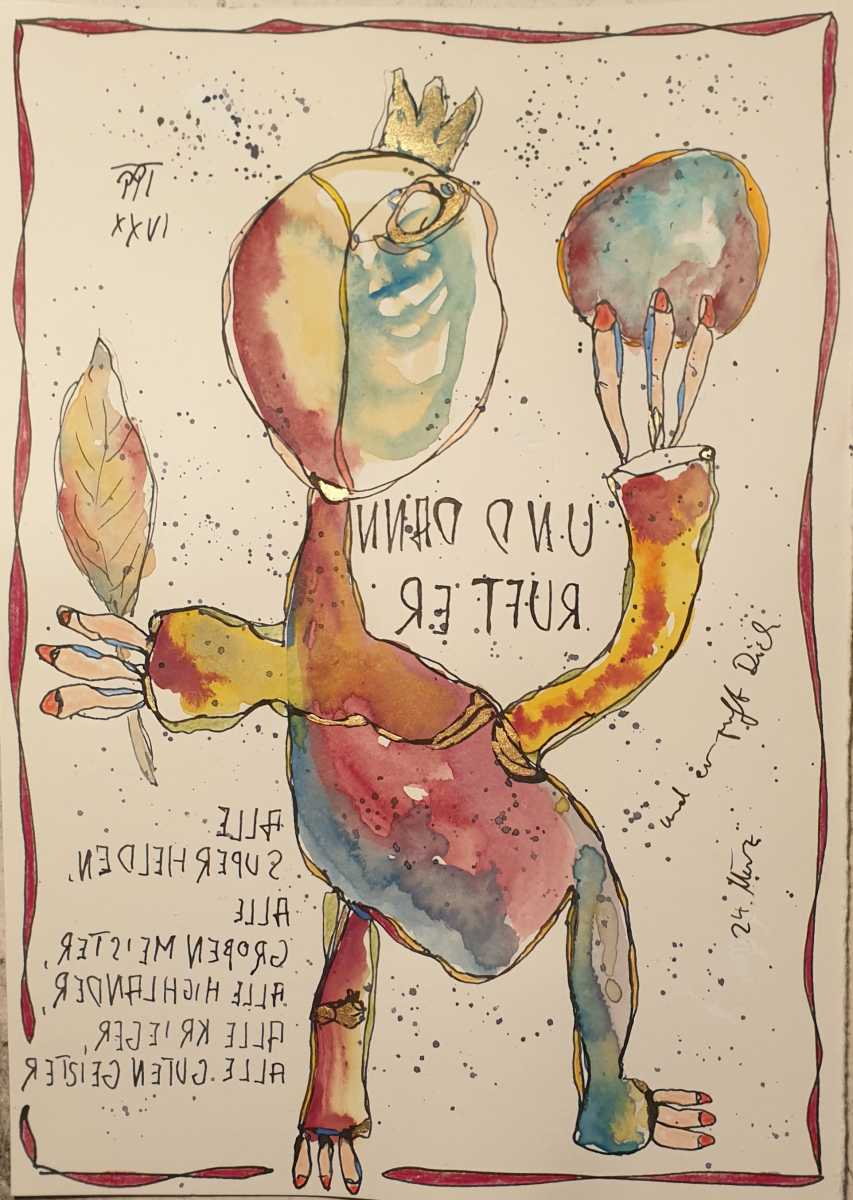 XXVI
UND DANN
RUFT ER
und er ruft Dich
24. März
ALLE
SUPERHELDEN,
ALLE
GROßEN MEISTER,
ALLE HIGHLANDER,
ALLE KRIEGER,
ALLE GUTEN GEISTER